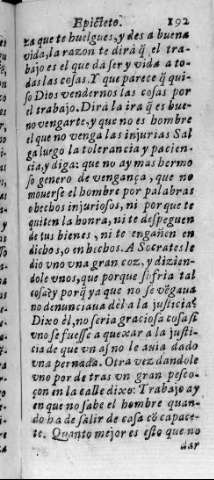 Epicteto. 192
ra que te huelgues, y des a buena
vida, la razon te dirà q̃ el tra-
bajo es el que da ser y vida a to-
das las cosas. Y que parece q̃ qui-
so Dios vendernos las cosas por
el trabajo. Dirà la ira q̃ es bue-
no vengarte, y que no es hombre
el que no venga las injurias. Sal
ga luego la tolerancia y pacien-
cia, y diga: que no ay mas hermo
so genero de vengança, que no
mouerse el hombre por palabras
o hechos injuriosos, ni por que te
quiten la honra, ni te despeguen
de tus bienes, ni te engañen en
dichos, o en hechos. A Socrates le
dio vno vna gran coz, y dizien-
dole vnos, que porque sufria tal
cosa? y porq̃ ya que no se vẽgaua
no denunciaua del a la justicia?
Dixo el, no seria graciosa cosa si
vno se fuesse a quexar a la justi-
cia de que vn asno le auia dado
vna pernada. Otra vez dandole
vno por de tras vn gran pesco-
çon en la calle dixo: Trabajo ay
en que no sabe el hombre quan-
do ha de salir de casa cõ capace-
te. Quanto mejor es esto que no
dar